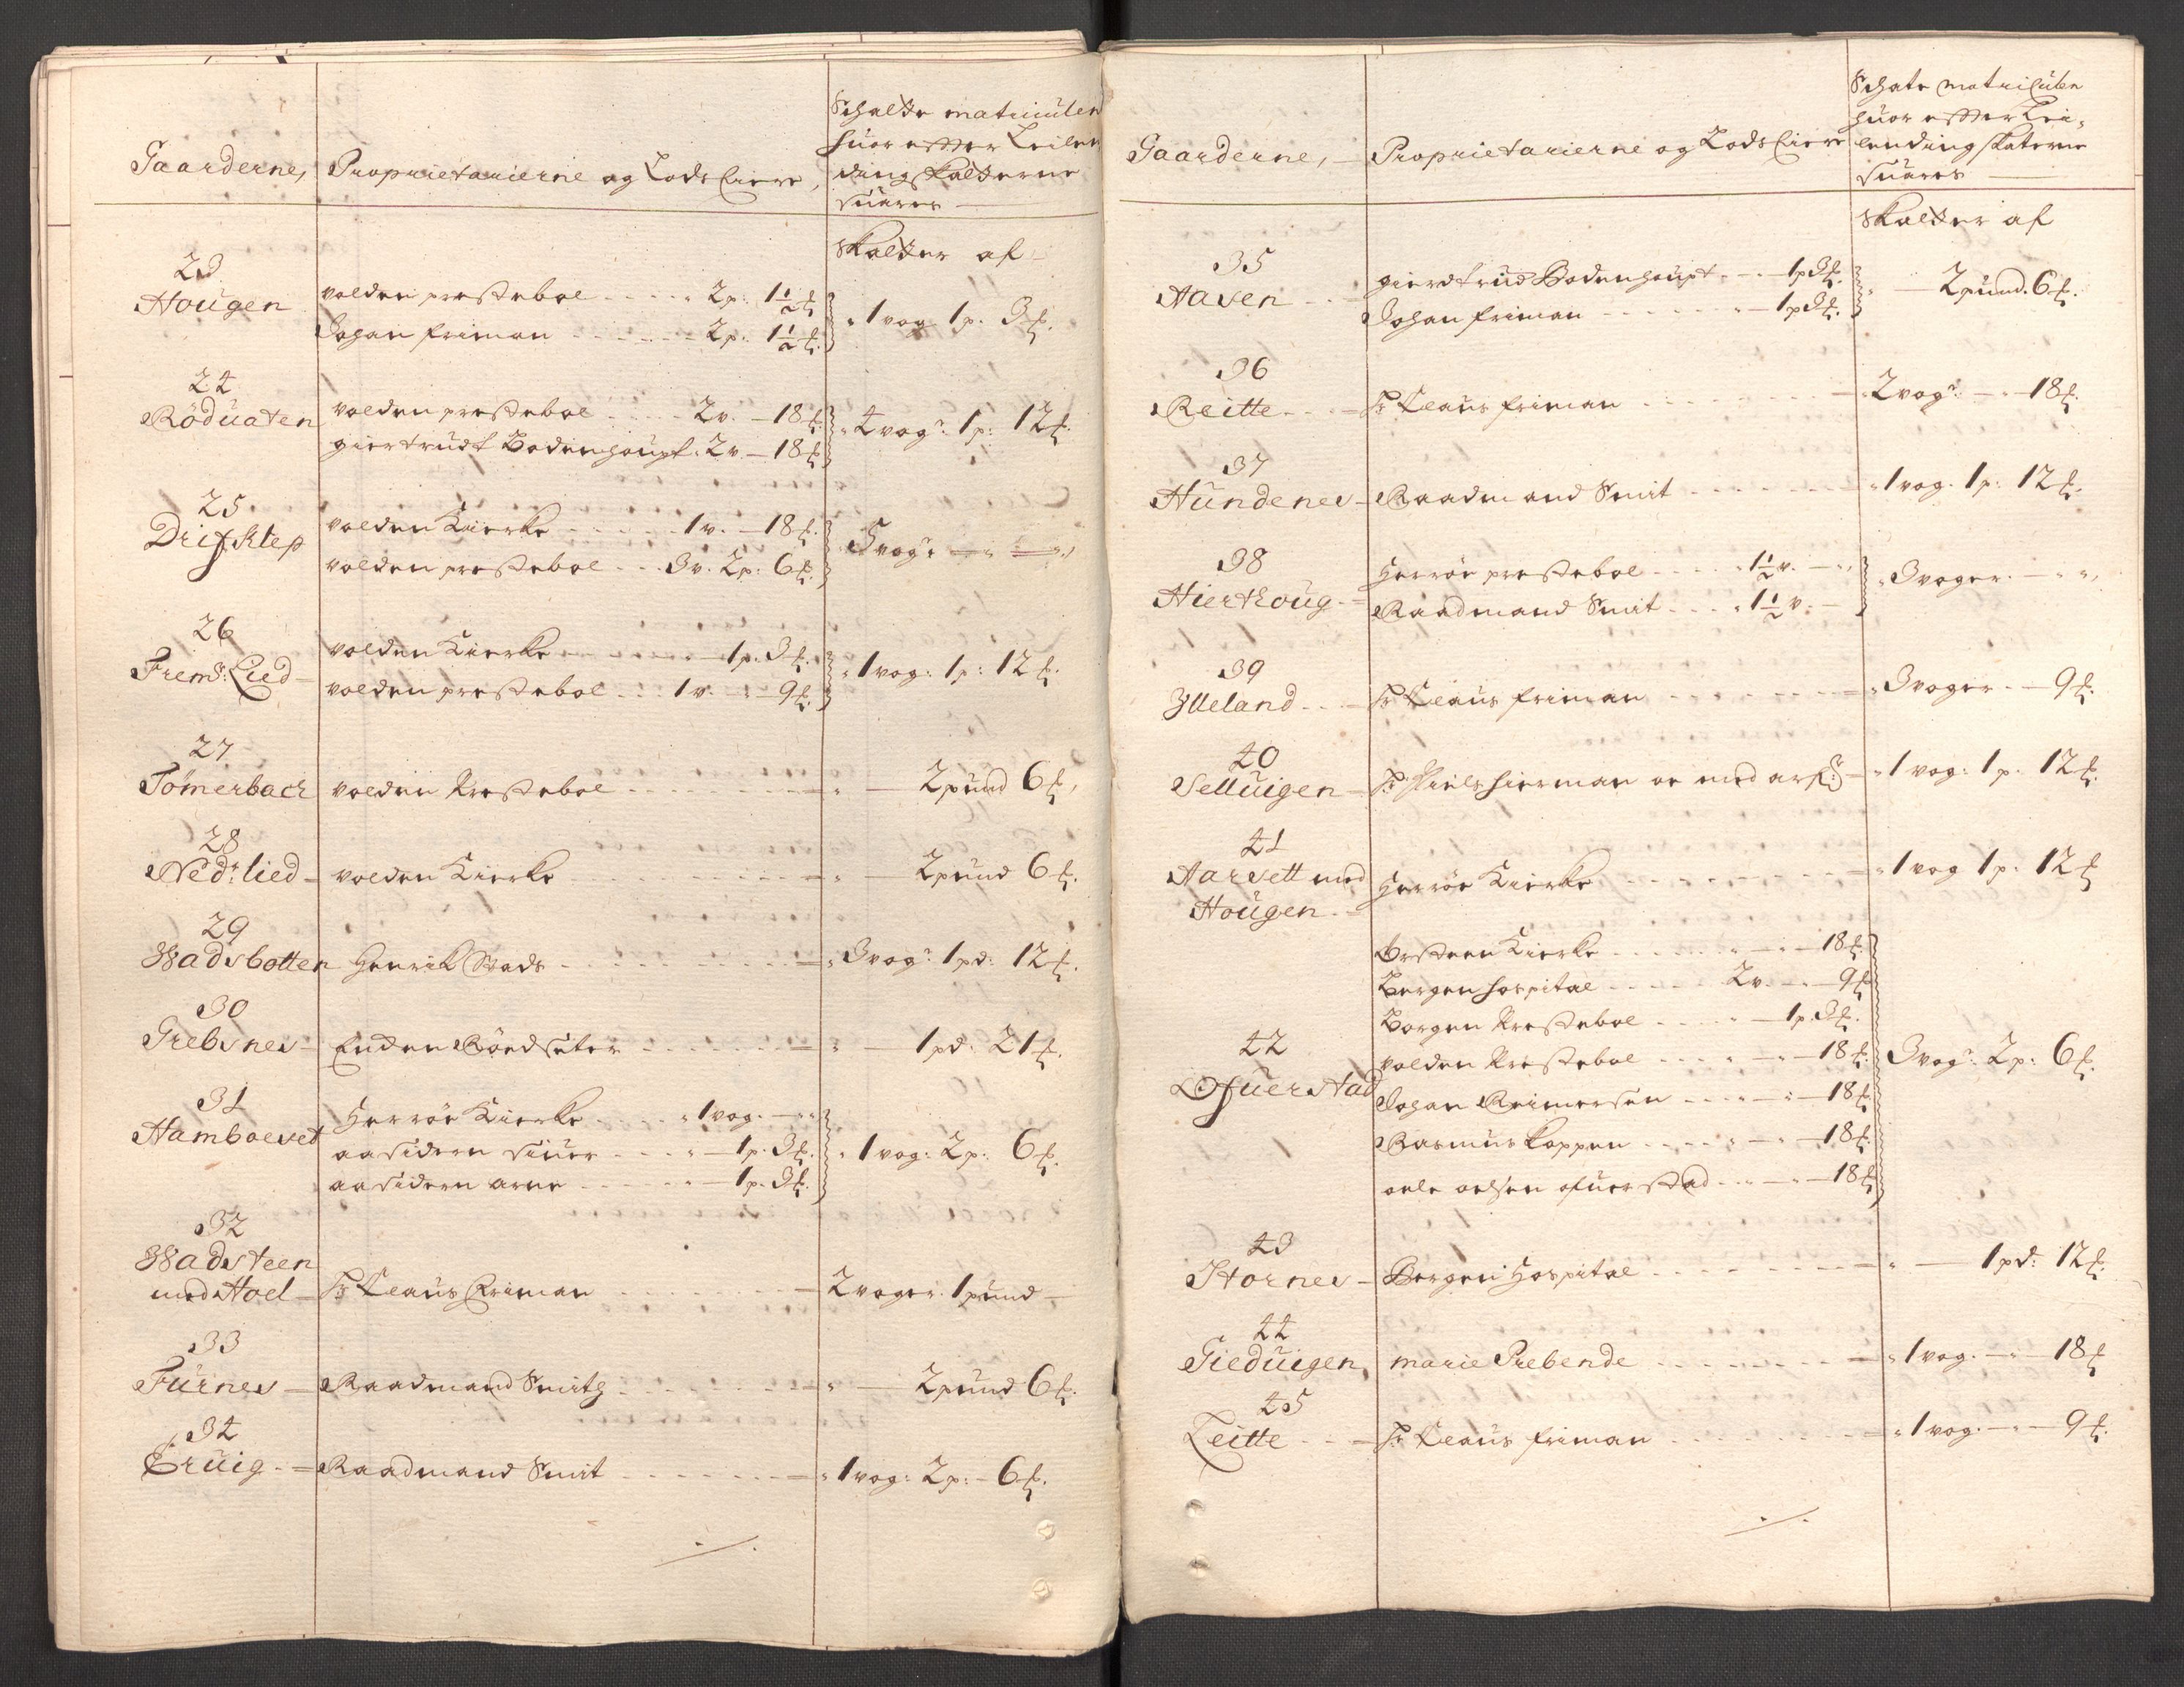 Gaarderne,
Proprietarierne og Lods Eiere,
Schatte matriculen
huor effter Leilen
dingskatterne
suares
Skatter af
23
Hougen
volden prestebol 2 p: 1½ ℔
Johan friman 2 p: 1½ ℔
1 vog 1 p. 3 ℔.
24
Röduaten
volden prestebol 2 v. 18 ℔
giertrudt Bodenhoupt 2 v 18 ℔
4 vogr. 1 p: 12 ℔.
25
Drifsklep
volden Kierke 1 v. 18 ℔.
volden prestebol 3 v. 2 p: 6 ℔.
5 vogr
26
Fremr: Lied
volden Kierke 1 p. 3 ℔.
volden prestebol 1 v. 9 ℔.
1 vog: 1 p: 12 ℔.
27
Tömerbach
volden Prestebol
2 pund 6 ℔,
28
Nedr: lied
volden Kierke
2 pund 6 ℔.
29
Wadsbotten
Henrik Stads
3 vogr 1 pd: 12 ℔.
30
Grebsnes
Enden Röedseter
1 pd. 21 ℔.
31
Hamboeset
Herröe Kierke 1 vog.
aasidern siuer 1 p. 3 ℔.
aasidern arne 1 p. 3 ℔.
1 vog: 2 p: 6 ℔.
32
Wadsteen
med Hoel
Hr Claus Friman
2 voger 1 pund
33
Furnes
Raadmand Smith
2 pund 6 ℔.
34
Eruig
Raadmand Smit
1 vog: 2 p: 6 ℔.
Gaarderne,
Proprietarierne og Lods Eiere
Schate matriculen
huor effter Lei,
lendingskaterne
suares
Skatter af
35
Aasen
gierdtrud Bodenhoupt 1 p 3 ℔.
Johan friman 1 p 3 ℔.
2 pund. 6 ℔.
36
Reitte
Hr Claus friman
2 vogr: 18 ℔.
37
Hundenes
Raadmand Smit
1 vog. 1 p: 12 ℔.
38
Hierthoug
Herröe prestebol 1½ v.
Raadmand Smit 1½ v.
3 voger.
39
Ytteland
Hr Claus friman
3 voger 9 ℔.
40
Selluigen
Hr Niels hierman oc med arf:
1 vog: 1 p. 12 ℔.
41
Aarsett med
Hougen
Herröe Kierke
1 vog 1 p: 12 ℔
42
Ofuerstad
Örsteen Kierke 18 ℔.
Bergen hospital 2 v. 9 ℔
Borgen Prestebol 1 p. 3 ℔.
volden Prestebol 18 ℔.
Johan Reimersen 18 ℔.
Rasmus Koppen 18 ℔.
oele oelsen ofuerstad 18 ℔
3 vogr: 2 p: 6 ℔.
43
Stornes
Bergens Hospital
1 pd: 12 ℔.
44
Gieduigen,
marie Prebende
1 vog. 18 ℔
45
Leitte
Hr Claus friman
1 vog. 9 ℔.